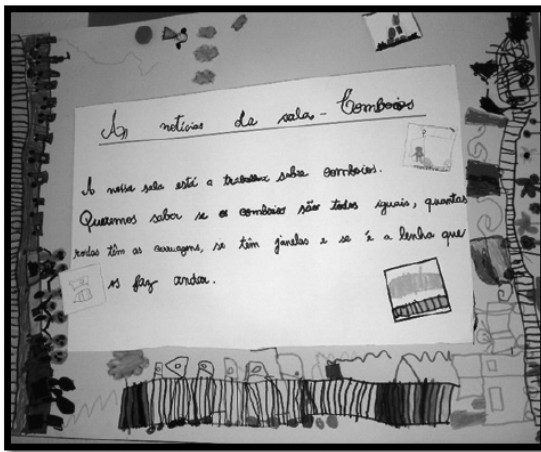 As notícias da sala - Comboios
A nossa sala está a trabalhar sobre comboios.
Queremos saber se os comboios são todos iguais, quantas
rodas têm as carruagens, se têm janelas e se é a lenha que
os faz andar.